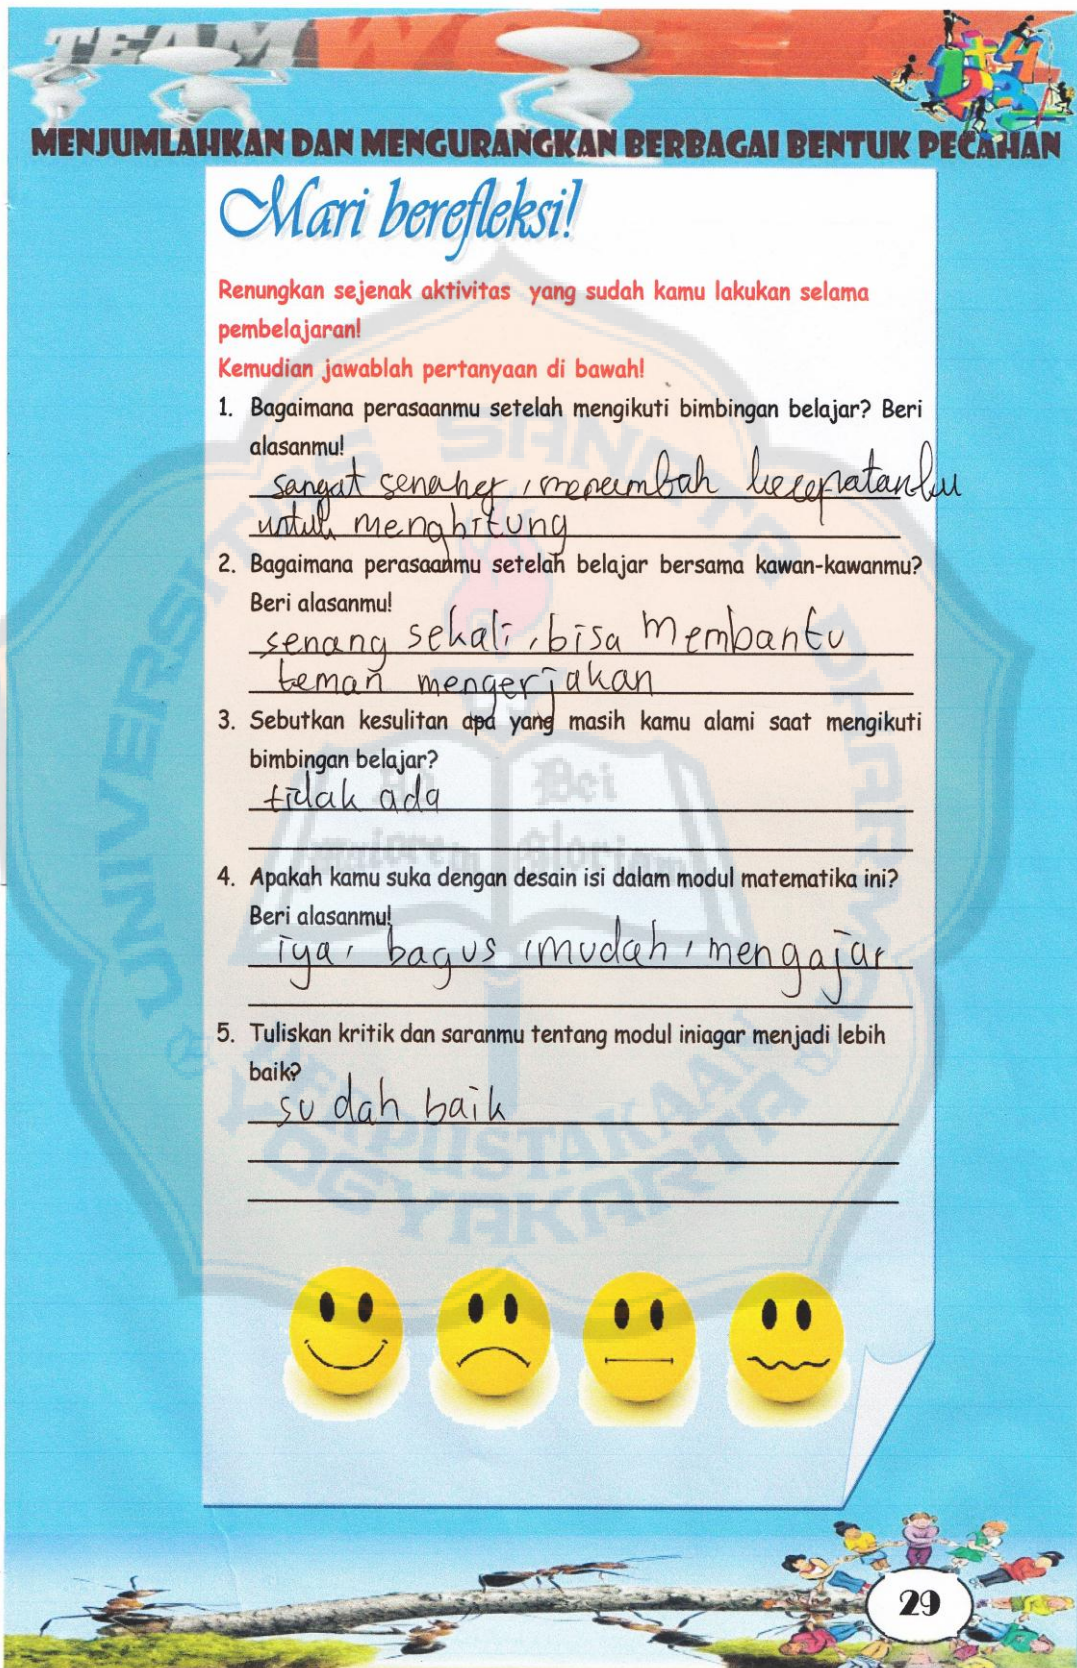 TEAMWORK
MENJUMLAHKAN DAN MENGURANGKAN BERBAGAI BENTUK PECAHAN
Mari berefleksi!
Renungkan sejenak aktivitas yang sudah kamu lakukan selama
pembelajaran!
Kemudian jawablah pertanyaan di bawah!
1. Bagaimana perasaanmu setelah mengikuti bimbingan belajar? Beri
alasanmu!
sangat , kecepatanku
untuk menghitung
2. Bagaimana perasaanmu setelah belajar bersama kawan-kawanmu?
Beri alasanmu!
senang sekali, bisa membantu
teman mengerjakan
3. Sebutkan kesulitan apa yang masih kamu alami saat mengikuti
bimbingan belajar?
tidak ada
4. Apakah kamu suka dengan desain isi dalam modul matematika ini?
Beri alasanmu!
iya, bagus, mudah, mengajar
5. Tuliskan kritik dan saranmu tentang modul iniagar menjadi lebih
baik?
sudah baik
29
UNIVERSITAS SANATA DHARMA
Ad Dei
maiorem Gloriam
PERPUSTAKAAN
YOGYAKARTA